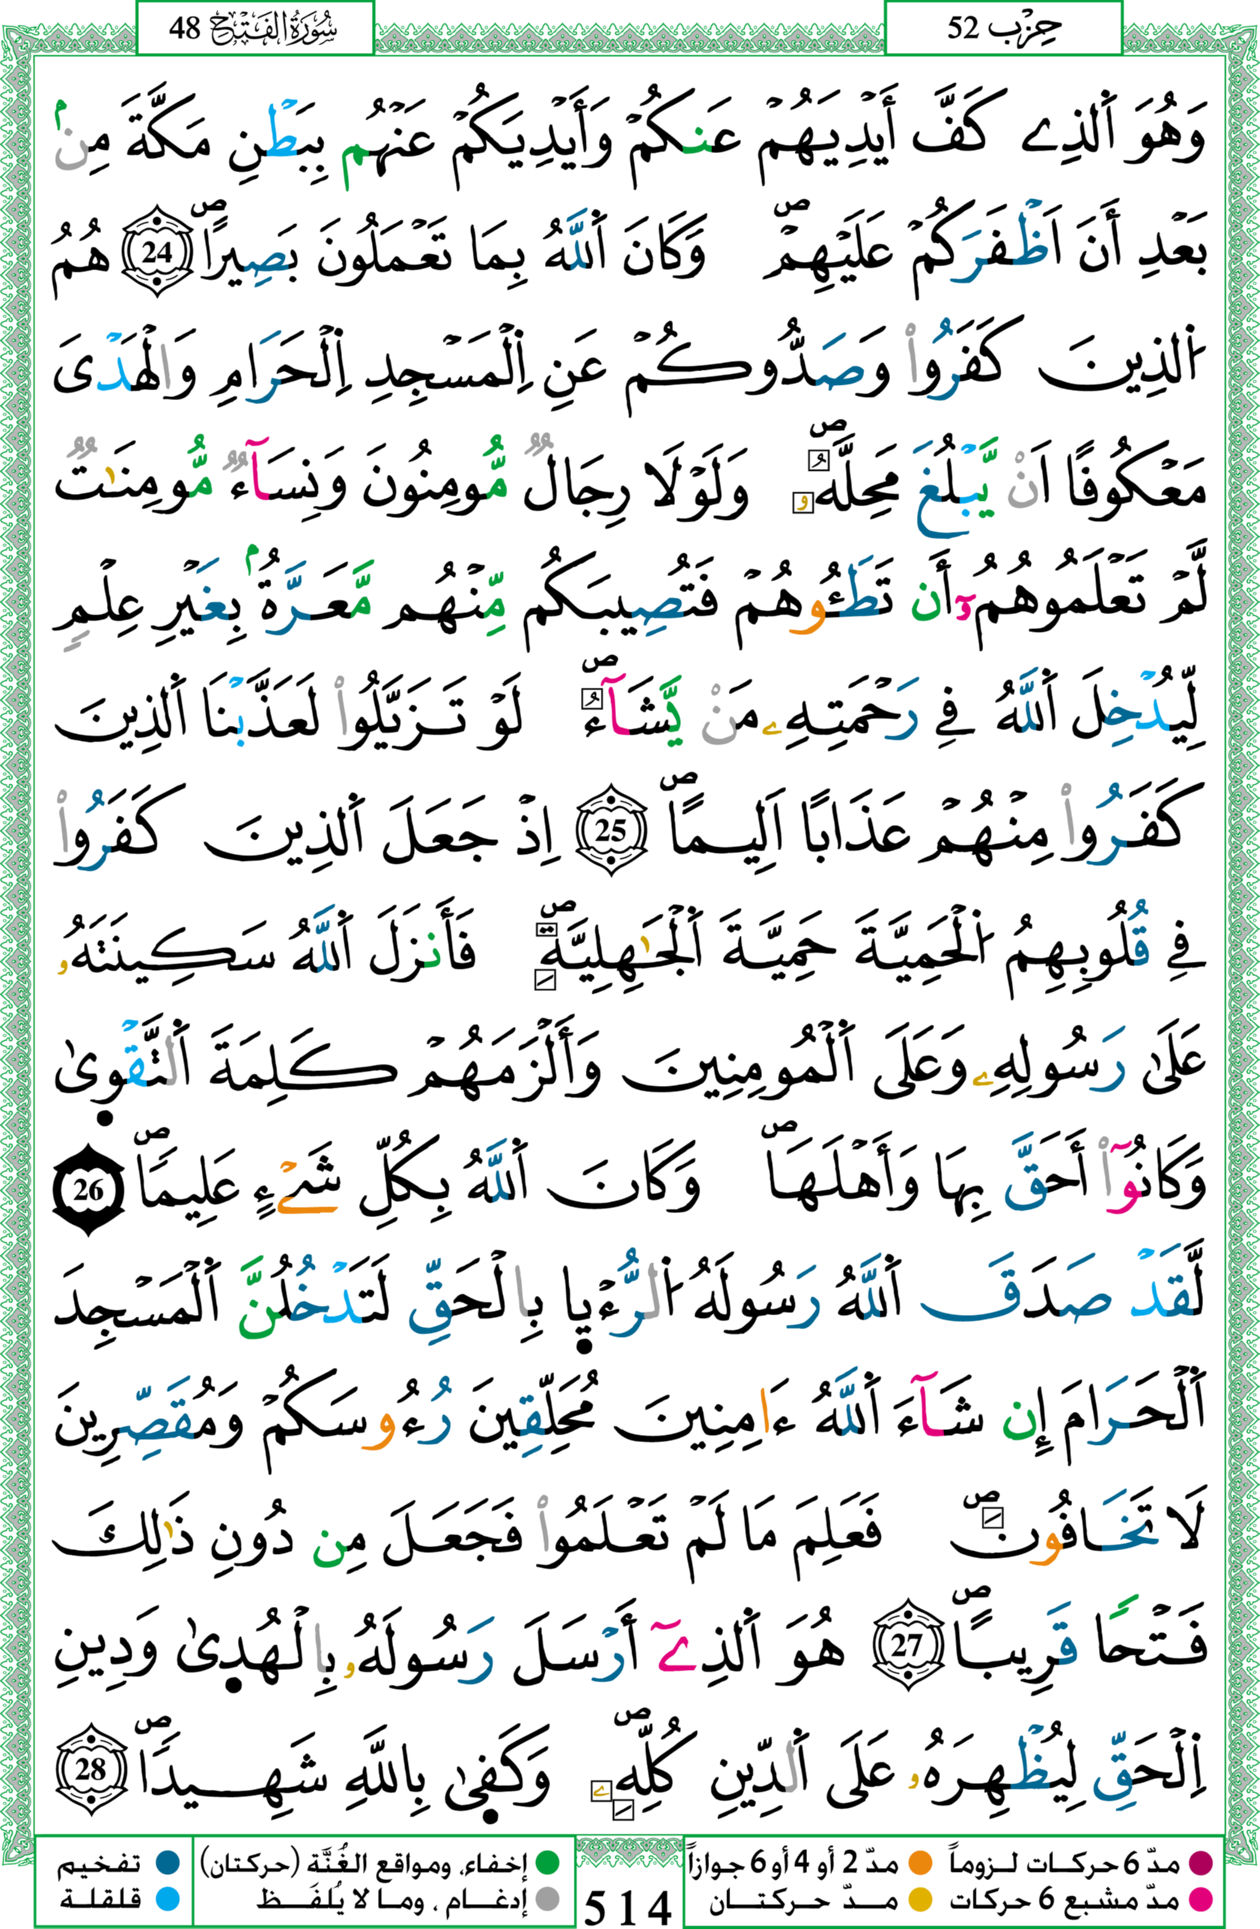 حِزْب 52
سُورَةُ الفَتْح 48
وَهُوَ اَ۬لذِے كَفَّ أَيْدِيَهُمْ عَنكُمْ وَأَيْدِيَكُمْ عَنْهُم بِبَطْنِ مَكَّةَ مِنۢ
بَعْدِ أَنَ اَظْفَرَكُمْ عَلَيْهِمْۖ وَكَانَ اَ۬للَّهُ بِمَا تَعْمَلُونَ بَصِيراًۖ 24 هُمُ
اُ۬لذِينَ كَفَرُواْ وَصَدُّوكُمْ عَنِ اِ۬لْمَسْجِدِ اِ۬لْحَرَامِ وَالْهَدْىَ
مَعْكُوفًا اَنْ يَّبْلُغَ مَحِلَّهُۥۖ وَلَوْلَا رِجَالٌ مُّومِنُونَ وَنِسَآءٌ مُّومِنَٰتٌ
لَّمْ تَعْلَمُوهُمُۥٓ أَن تَطَـُٔوهُمْ فَتُصِيبَكُم مِّنْهُم مَّعَرَّةُۢ بِغَيْرِ عِلْمٍ
لِّيُدْخِلَ اَ۬للَّهُ فِے رَحْمَتِهِۦ مَنْ يَّشَآءُۖ لَوْ تَزَيَّلُواْ لَعَذَّبْنَا اَ۬لذِينَ
كَفَرُواْ مِنْهُمْ عَذَابًا اَلِيماًۖ 25 اِذْ جَعَلَ اَ۬لذِينَ كَفَرُواْ
فِے قُلُوبِهِمُ اُ۬لْحَمِيَّةَ حَمِيَّةَ اَ۬لْجَٰهِلِيَّةِۖ فَأَنزَلَ اَ۬للَّهُ سَكِينَتَهُۥ
عَلَىٰ رَسُولِهِۦ وَعَلَى اَ۬لْمُومِنِينَ وَأَلْزَمَهُمْ كَلِمَةَ اَ۬لتَّقْو۪ىٰ
وَكَانُوٓاْ أَحَقَّ بِهَا وَأَهْلَهَاۖ وَكَانَ اَ۬للَّهُ بِكُلِّ شَےْءٍ عَلِيماًۖ 26
لَّقَدْ صَدَقَ اَ۬للَّهُ رَسُولَهُ اُ۬لرُّءْي۪ا بِالْحَقِّ لَتَدْخُلُنَّ اَ۬لْمَسْجِدَ
اَ۬لْحَرَامَ إِن شَآءَ اَ۬للَّهُ ءَامِنِينَ مُحَلِّقِينَ رُءُوسَكُمْ وَمُقَصِّرِينَ
لَا تَخَافُونَۖ فَعَلِمَ مَا لَمْ تَعْلَمُواْ فَجَعَلَ مِن دُونِ ذَٰلِكَ
فَتْحًا قَرِيباًۖ 27 هُوَ اَ۬لذِےٓ أَرْسَلَ رَسُولَهُۥ بِالْهُد۪ىٰ وَدِينِ
اِ۬لْحَقِّ لِيُظْهِرَهُۥ عَلَى اَ۬لدِّينِ كُلِّهِۦۖ وَكَف۪ىٰ بِاللَّهِ شَهِيداًۖ 28
مدّ 6 حركات لـزوماً
مدّ 2 أو 4 أو 6 جوازاً
مدّ مشبع 6 حركات
مـدّ حـركتـان
514
إخفاء، ومواقع الغُنَّة (حركتان)
إدغـام ، ومـا لا يُلفَـظ
تفخيم
قلقلة